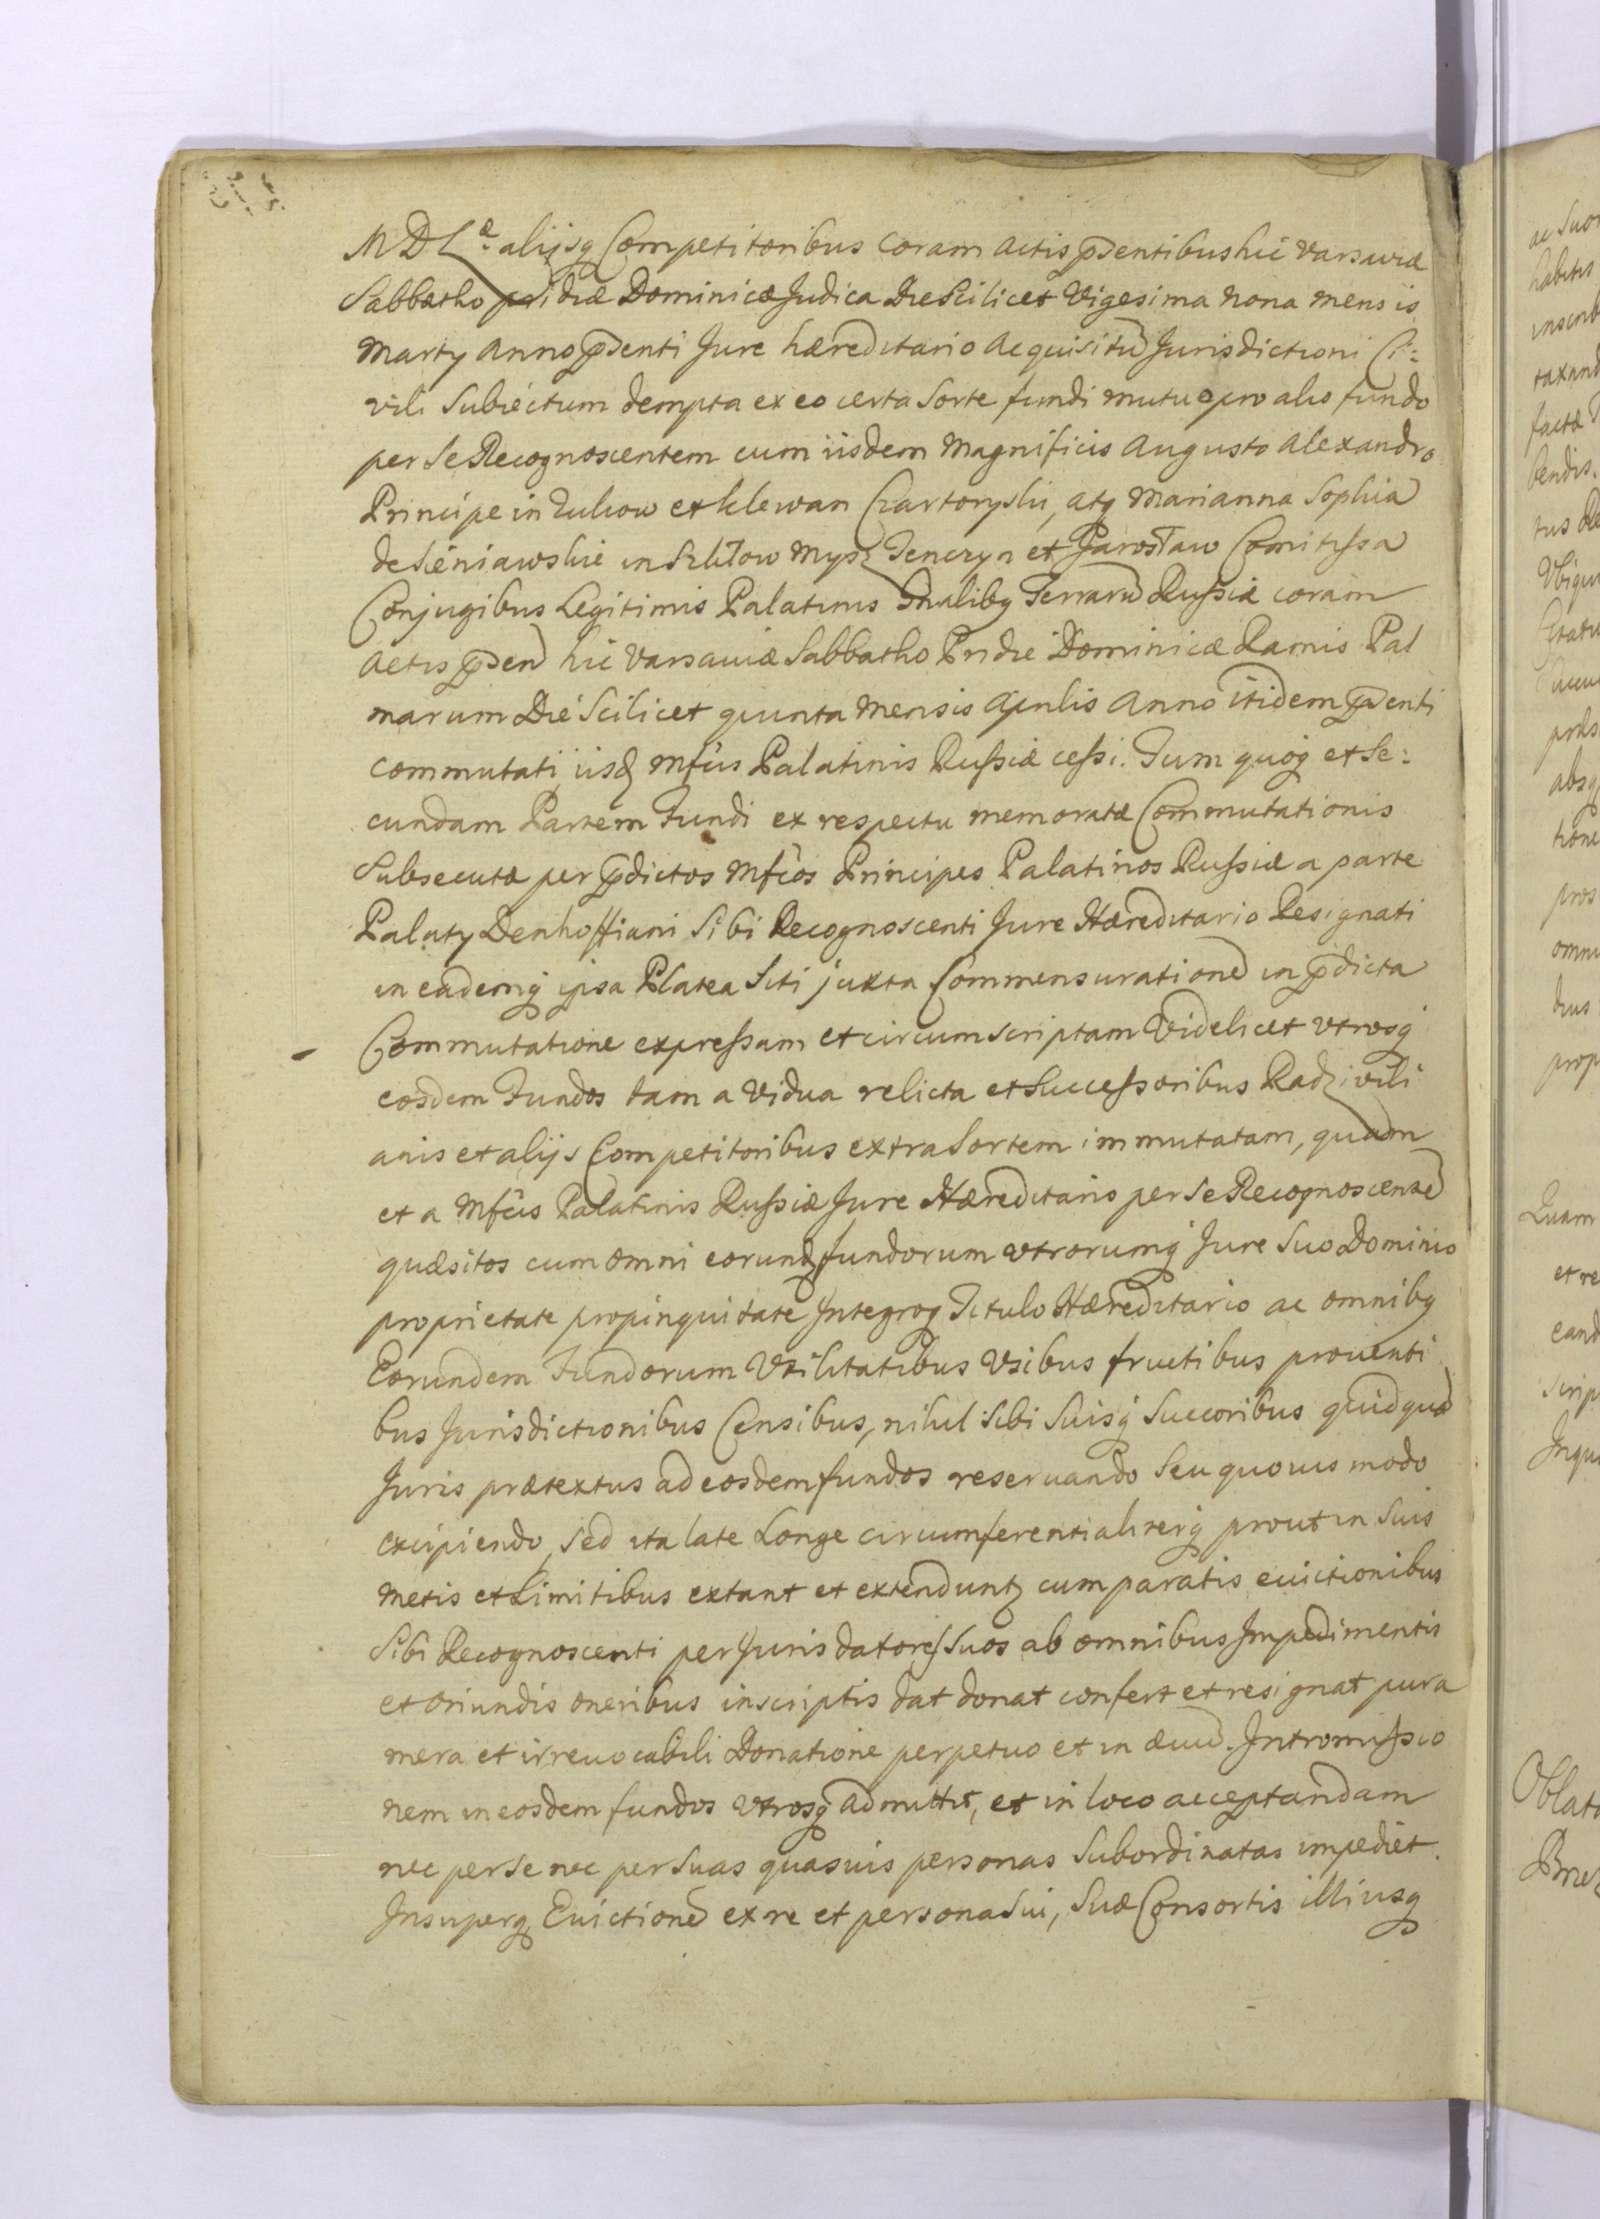 MDLæ alijsq Competitoribus coram actis pñsentibus hic Varsaviæ
Sabbatho pridiæ Dominicæ Judica Die Scilicet Vigesima nona mensis
Marty Anno pñsenti Jure hæreditario acquisitũ Jurisdictioni Ci:
vili Subiectum dempta ex eo certa Sorte fundi mutuo pro alio fundo
per se Recognoscentem cum iisdem Magnificis Augusto Alexandro
Principe in Zukow et Klewan Czartoryski, atq Marianna Sophia
de Sieniawskie in Szkłow Mysz Tenczyn et Jarosław Comitissa
Conjugibus Legitimis Palatinis Gñalibq Terrarũ Russiæ coram
Actis pñsen hic Varsaviæ Sabbatho Pridie Dominicæ Ramis Pal
marum Die Scilicet quinta Mensis Aprilis Anno itidem pñsenti
commutati, iisd Mfcis Palatinis Russiæ cessi. Tum quoq et Se:
cundam Partem Fundi ex respectu memoratæ Commutationis
Subsecutæ per pdictos Mfcos Principes Palatinos Russiæ a parte
Palaty Denhoffiani Sibi Recognoscenti Jure Hæreditario Resignati
in eademq ipsa Platea Siti juxta Commensurationẽ in pdicta
Commutatione expressam et circumscriptam Videlicet utrosq
eosdem Fundos tam a Vidua relicta et Successoribus Radzivili
anis et alijs Competitoribus extra Sortem immutatam, quam
et a Mfcis Palatinis Russiæ Jure Hæreditario per se Recognoscentẽ
quæsitos cum omni eorund fundorum utrorumq Jure Suo Dominio
proprietate propinquitate Integroq Titulo Hæreditario ac omnibq
Eorundem Fundorum Utilitatibus Usibus fructibus proventi
bus Jurisdictionibus Censibus, nihil Sibi Suisq Succoribus quidquã
Juris prætextus ad eosdem fundos reservando Seu quovis modo
excipiendo, Sed ita late Longe circumferentialiterq prout in Suis
Metis et Limitibus extant et extendunt cum paratis evictionibus
Sibi Recognoscenti per Juris datores Suos ab omnibus Impedimentis
et oriundis oneribus inscriptis dat donat confert et resignat pura
mera et irrevocabili Donatione perpetuo et in ævũ. Intromissio
nem in eosdem fundos utrosq admittit, et in loco acceptandam
nec per se nec per Suas quasvis personas Subordinatas impediet.
Insuperq Evictionẽ ex re et persona Sui, Suæ Consortis illiusq